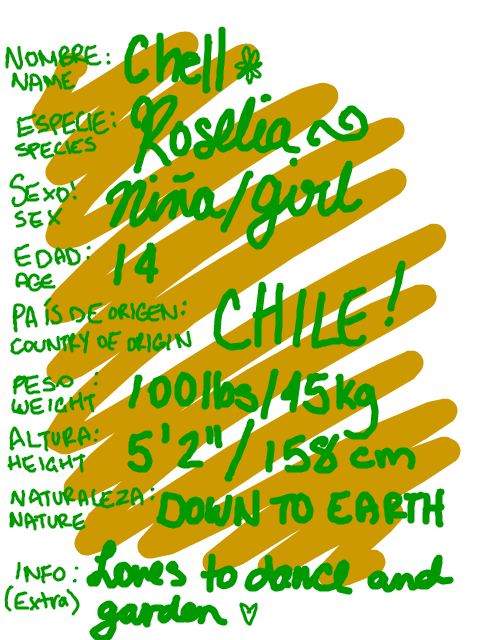 NOMBRE: Chell
NAME
ESPECIE: Roselia
SPECIES
SEXO: niña/girl
SEX
EDAD: 14
AGE
PAÍS DE ORIGEN: CHILE!
COUNTRY OF ORIGIN
PESO: 100lbs/45kg
WEIGHT
ALTURA: 5'2"/158cm
HEIGHT
NATURALEZA: DOWN TO EARTH
NATURE
INFO: Loves to dance and
(Extra) garden